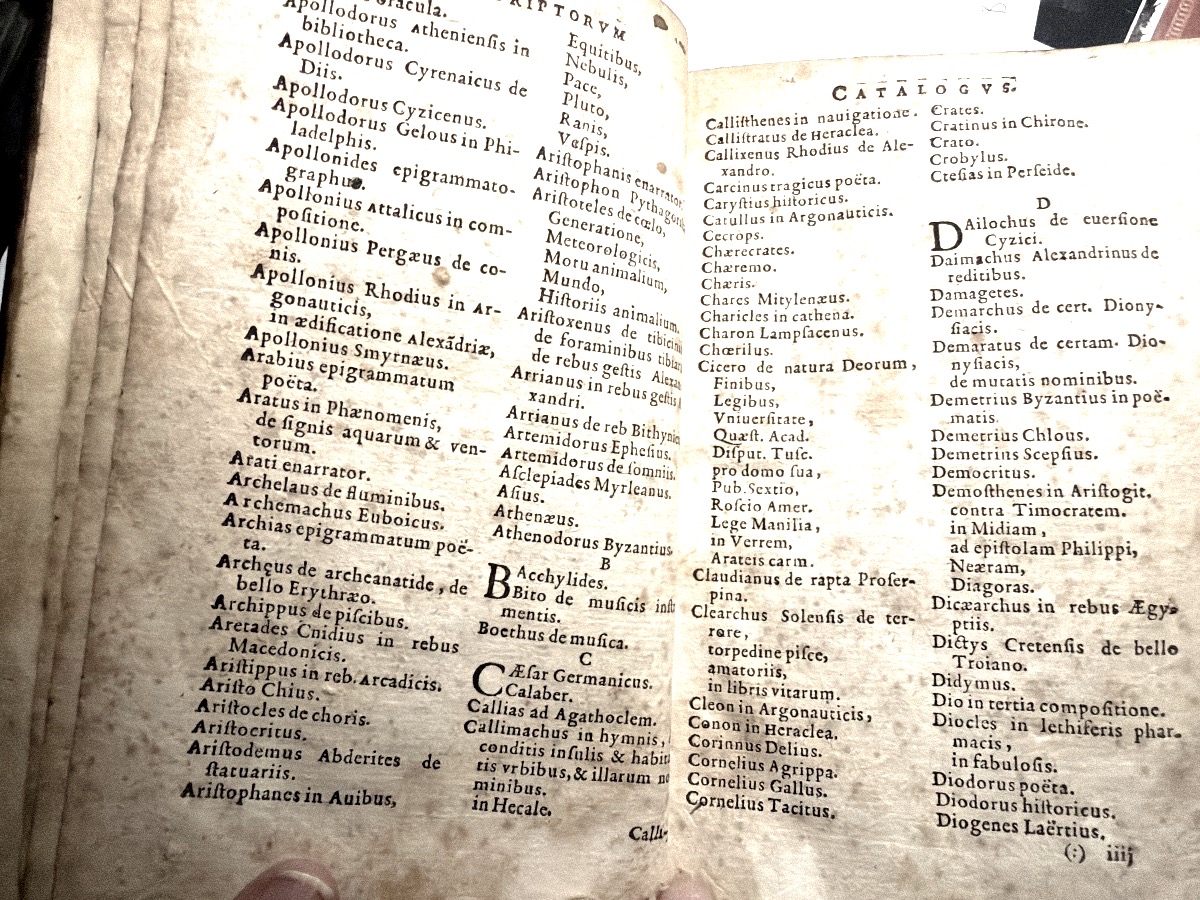 RIPTORVM
Apollodorus Atheniensis in
bibliotheca.
Apollodorus Cyrenaicus de
Diis.
Apollodorus Cyzicenus.
Apollodorus Gelous in Phi-
ladelphis.
Apollonides epigrammato-
graphus.
Apollonius Attalicus in com-
positione.
Apollonius Pergæus de co-
nis.
Apollonius Rhodius in Ar-
gonauticis,
in ædificatione Alexãdriæ,
Apollonius Smyrnæus.
Arabius epigrammatum
poëta.
Aratus in Phænomenis,
de signis aquarum & ven-
torum.
Arati enarrator.
Archelaus de fluminibus.
Archemachus Euboicus.
Archias epigrammatum poë-
ta.
Archęus de archeanatide, de
bello Erythræo.
Archippus de piscibus.
Aretades Cnidius in rebus
Macedonicis.
Aristippus in reb. Arcadicis.
Aristo Chius.
Aristocles de choris.
Aristocritus.
Aristodemus Abderites de
statuariis.
Aristophanes in Auibus,
Equitibus,
Nebulis,
Pace,
Pluto,
Ranis,
Vespis.
Aristophanis
Aristophon
Aristoteles de cœlo,
Generatione,
Meteorologicis,
Motu animalium,
Mundo,
Historiis animalium.
Aristoxenus de
de foraminibus
de rebus gestis
Arrianus in rebus gestis
xandri.
Arrianus de reb
Artemidorus Ephesius.
Artemidorus de somniis.
Asclepiades Myrleanus.
Asius.
Athenæus.
Athenodorus Byzantius
B
BAcchylides.
Bito de musicis
mentis.
Boethus de musica.
C
CÆsar Germanicus.
Calaber.
Callias ad Agathoclem.
Callimachus in hymnis,
conditis insulis &
tis vrbibus, & illarum
minibus.
in Hecale.
Calli-
CATALOGVS.
Callisthenes in nauigatione.
Callistratus de Heraclea.
Callixenus Rhodius de Ale-
xandro.
Carcinus tragicus poëta.
Carystius historicus.
Catullus in Argonauticis.
Cecrops.
Chærecrates.
Chæremo.
Chæris.
Chares Mitylenæus.
Charicles in cathena.
Charon Lampsacenus.
Chœrilus.
Cicero de natura Deorum,
Finibus,
Legibus,
Vniuersitate,
Quæst. Acad.
Disput. Tusc.
pro domo sua,
Pub. Sextio,
Roscio Amer.
Lege Manilia,
in Verrem,
Arateis carm.
Claudianus de rapta Proser-
pina.
Clearchus Solensis de ter-
rore,
torpedine pisce,
amatoriis,
in libris vitarum.
Cleon in Argonauticis,
Conon in Heraclea.
Corinnus Delius.
Cornelius Agrippa.
Cornelius Gallus.
Cornelius Tacitus.
Crates.
Cratinus in Chirone.
Crato.
Crobylus.
Ctesias in Perseide.
D
DAilochus de euersione
Cyzici.
Daimachus Alexandrinus de
reditibus.
Damagetes.
Demarchus de cert. Diony-
siacis.
Demaratus de certam. Dio-
nysiacis,
de mutatis nominibus.
Demetrius Byzantius in poë-
matis.
Demetrius Chlous.
Demetrius Scepsius.
Democritus.
Demosthenes in Aristogit.
contra Timocratem.
in Midiam,
ad epistolam Philippi,
Neæram,
Diagoras.
Dicæarchus in rebus Ægy-
ptiis.
Dictys Cretensis de bello
Troiano.
Didymus.
Dio in tertia compositione.
Diocles in lethiferis phar-
macis,
in fabulosis.
Diodorus poëta.
Diodorus historicus.
Diogenes Laërtius.
(:) iiij